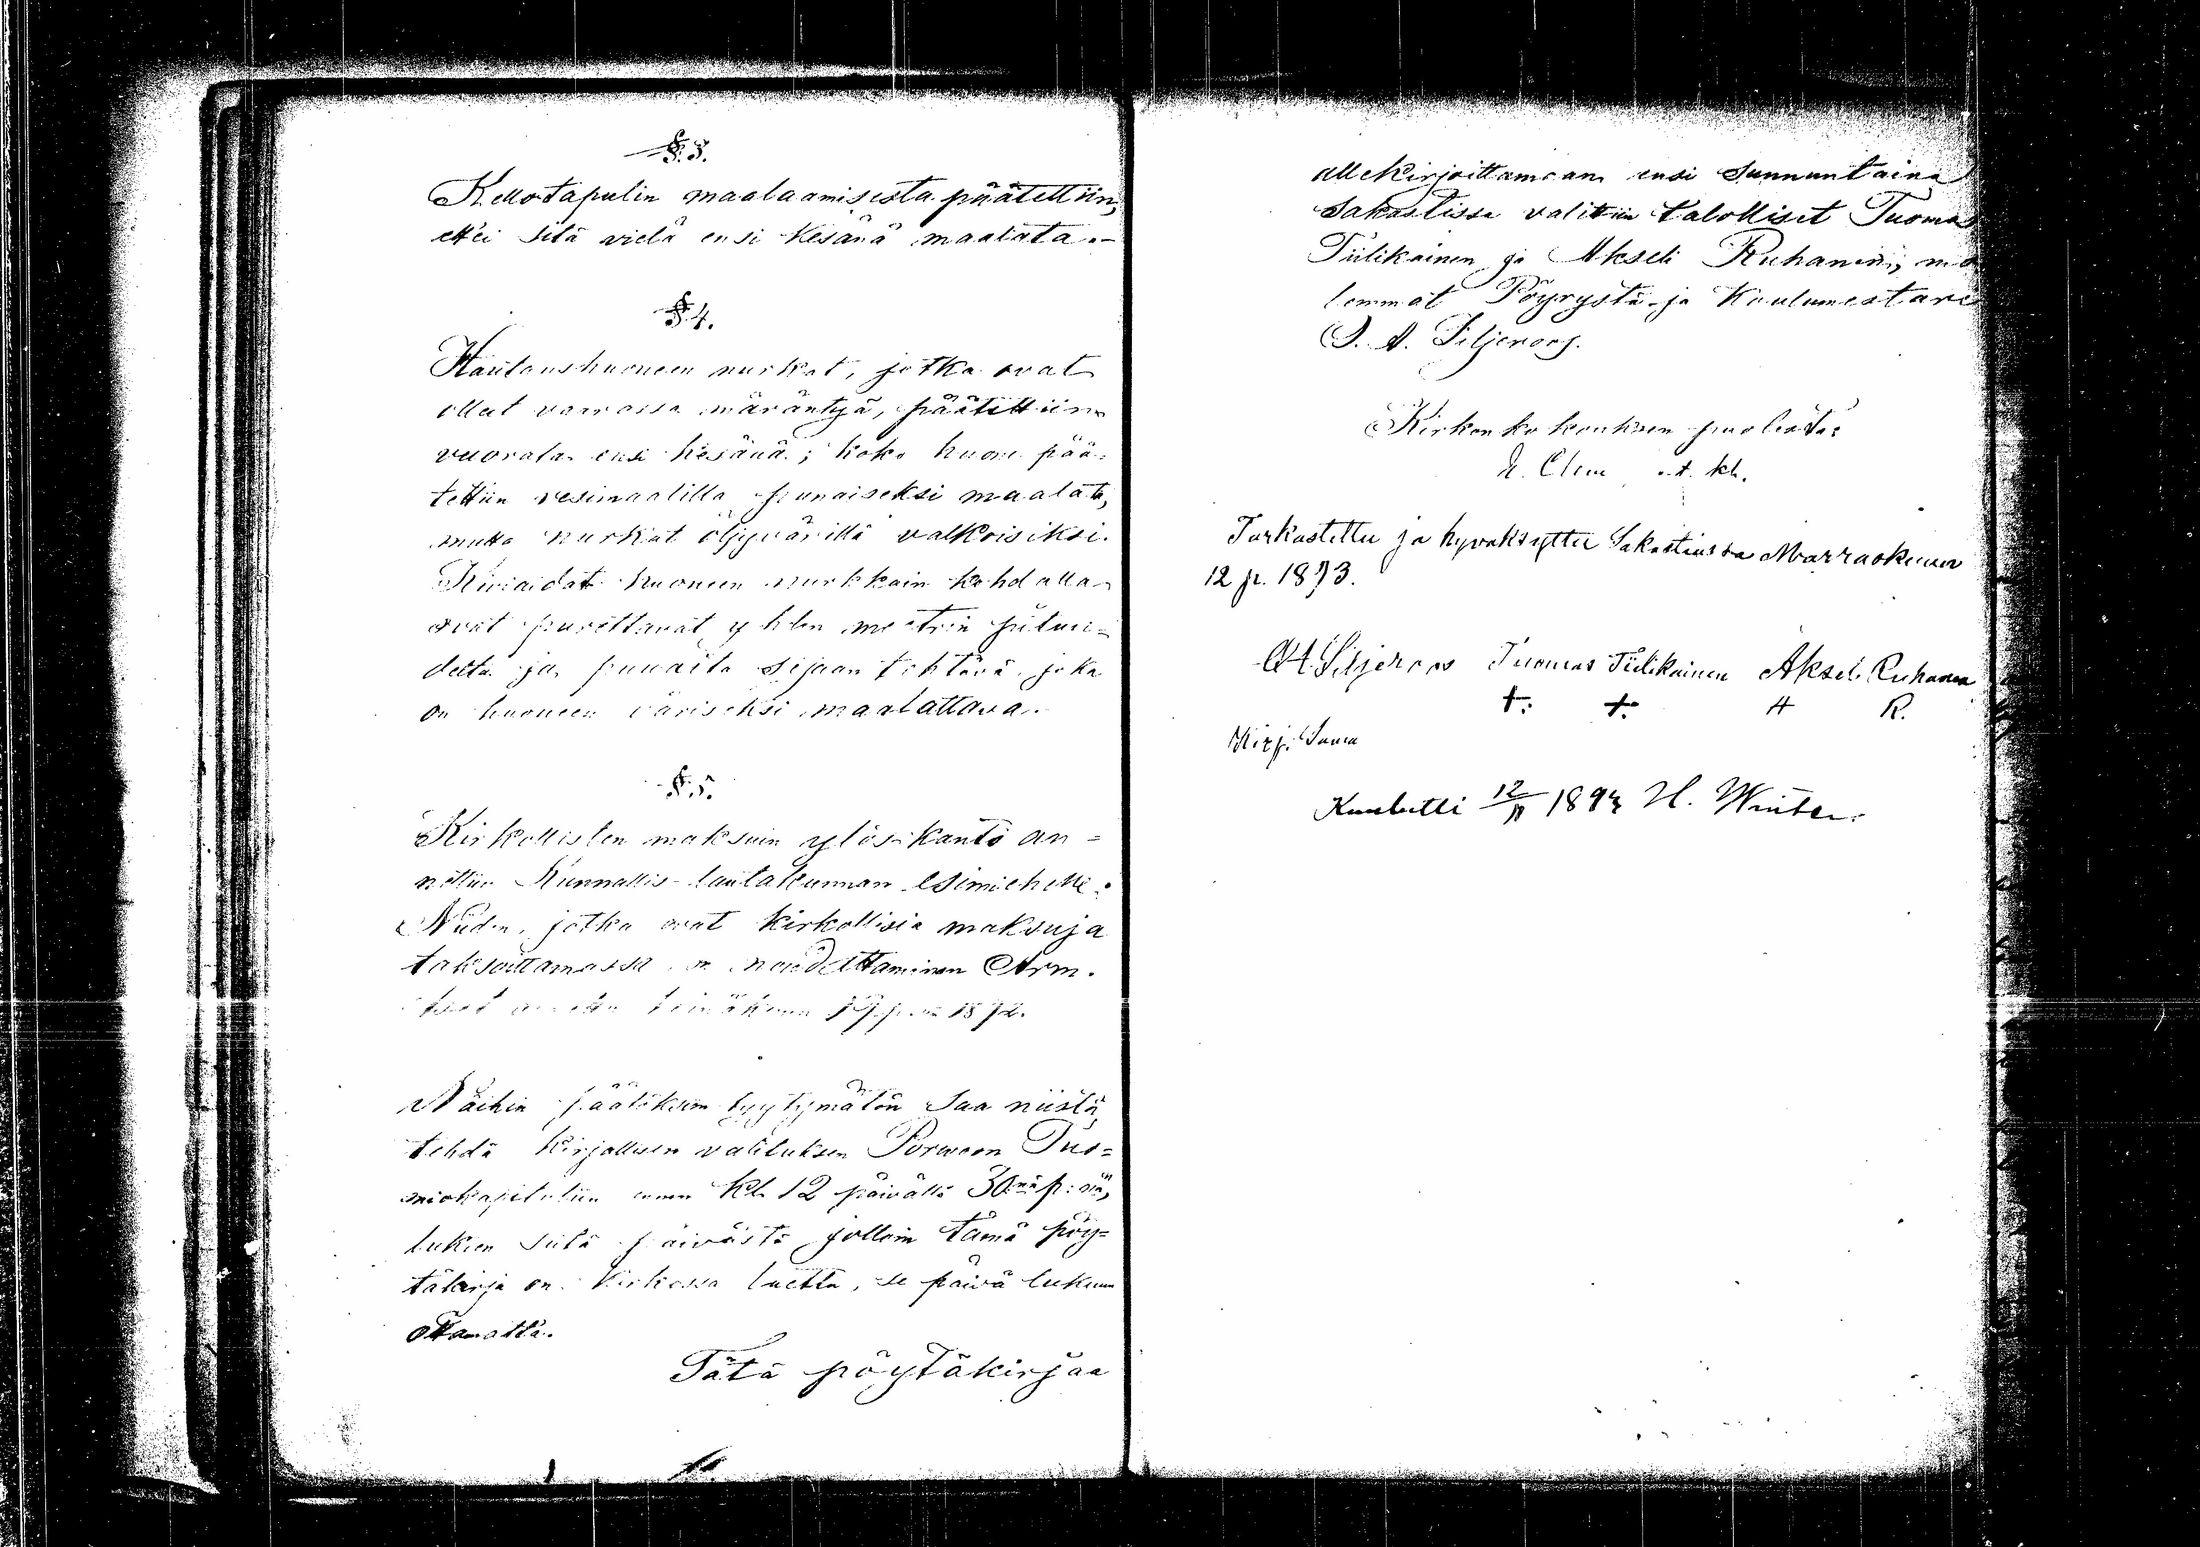 §.3.
Kellotapulin maalaamisesta päätettiin,
ettei sitä vielä ensi kesänä maalata.-
§4.
Hautaushuoneen nurkat, jotka ovat
olleet vaarassa märäntyä, päätettiin
vuorata ensi kesänä; koko huone pää-
tettiin vesimaalilla punaiseksi maalata,
mutta nurkat öljyvärillä valkoisiksi.
Kiviaidat huoneen nurkkain kohdalla
ovat purettavat yhden meetrin pituu-
delta ja puuaita sijaan tehtävä, joka
on huoneen väriseksi maalattava.
§.5.
Kirkollisten maksuin ylös-kanto an-
nettiin Kunnallis-lautakunnan esimiehelle.
Niiden, jotka ovat kirkollisia maksuja
taksoittamassa on noudattaminen Arm.
heinäkuun 1892.
Näihin päätöksiin tyytymätön saa niistä
tehdä kirjallisen valituksen Porvoon Tuo-
miokapituliin ennen kl. 12 päivällä 30:nä p:nä,
lukien siitä päivästä jolloin tämä pöy-
täkirja on kirkossa luettu, se päivä lukuun
ottamatta.
Tätä pöytäkirjaa
allekirjoittamaan ensi sunnuntaina
Sakastissa valittiin talolliset Tuomas
Tiilikainen ja Akseli Ruhanen, mo
lemmat Pöyrystä ja Koulumestari
O. A. Siljeroos.
Kirkonkokouksen puolesta:
Tarkastettu ja hyväksytty Sakastissa Marraskuun
12 p. 1893.
OA Siljeroos Tuomas Tiilikainen Akseli Ruhanen
A R.
Kuulutti 12/11 1893 H. Winter.